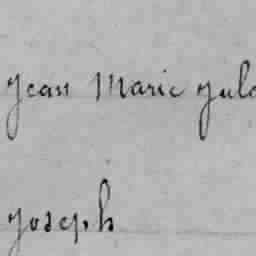 Jean Marie Jule
Joseph